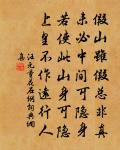 假山雖假總非真
未必中間可隱身
若使此山身可隱
上皇不作遠行人
汪元量花石綱詞典網
集